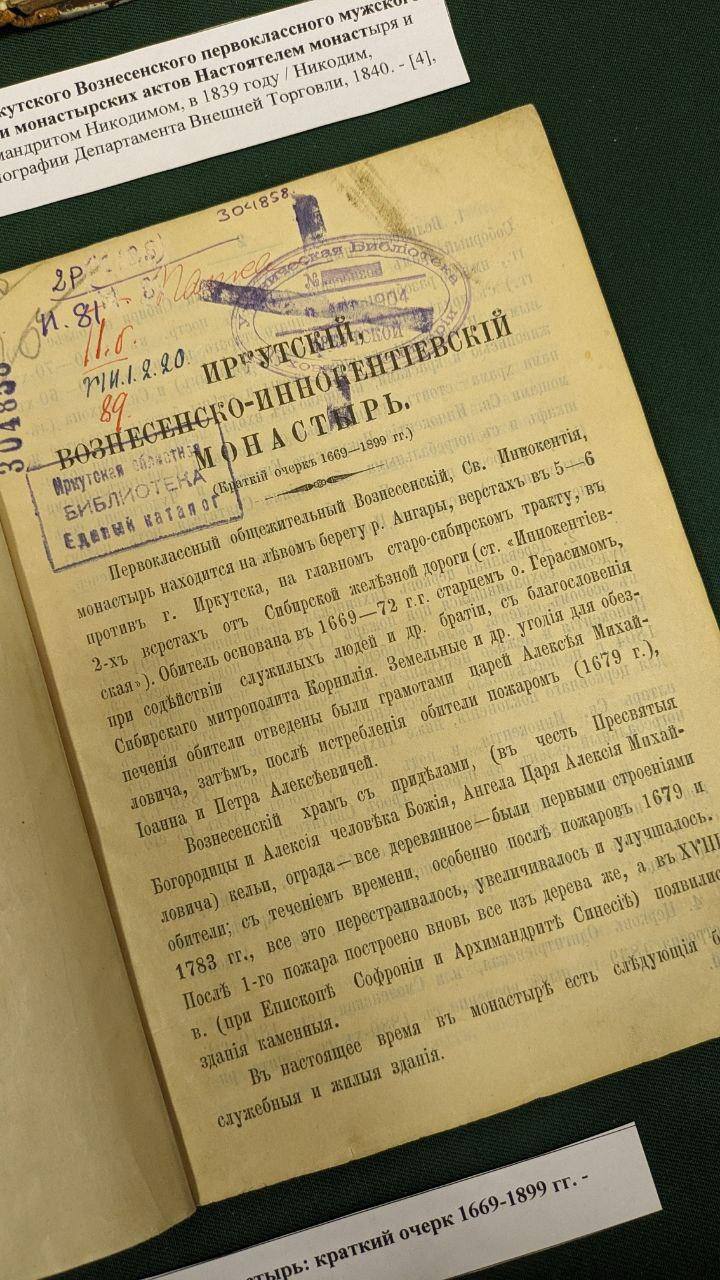 кутского Вознесенского первоклассного мужского
и монастырских актов Настоятелем монастыря и
мандритом Никодимом, в 1839 году / Никодим,
ографии Департамента Внешней Торговли, 1840. - [4],
304858.
2Р
И. 81
11.б.
VII.1.2.20.
89
304858
Библіотека
№
1904
Иркутская областная
БИБЛИОТЕКА
Единый каталог
ИРКУТСКІЙ,
ВОЗНЕСЕНСКО-ИННОКЕНТІЕВСКІЙ
МОНАСТЫРЬ.
(Краткій очеркъ 1669—1899 гг.)
Первоклассный общежительный Вознесенскій, Св. Иннокентія,
монастырь находится на лѣвомъ берегу р. Ангары, верстахъ въ 5—6
противъ г. Иркутска, на главномъ старо-сибирскомъ тракту, въ
2-хъ верстахъ отъ Сибирской желѣзной дороги (ст. «Иннокентіев-
ская»). Обитель основана въ 1669—72 г.г. старцемъ о. Герасимомъ,
при содѣйствіи служилыхъ людей и др. братіи, съ благословенія
Сибирскаго митрополита Корнилія. Земельные и др. угодія для обез-
печенія обители отведены были грамотами царей Алексѣя Михай-
ловича, затѣмъ, послѣ истребленія обители пожаромъ (1679 г.),
Іоанна и Петра Алексѣевичей.
Вознесенскій храмъ съ придѣлами, (въ честь Пресвятыя
Богородицы и Алексія человѣка Божія, Ангела Царя Алексія Михай-
ловича) кельи, ограда—все деревянное—были первыми строеніями
обители; съ теченіемъ времени, особенно послѣ пожаровъ 1679 и
1783 гг., все это перестраивалось, увеличивалось и улучшалось.
Послѣ 1-го пожара построено вновь все изъ дерева же, а въ XVIII
в. (при Епископѣ Софроніи и Архимандритѣ Синесіѣ) появились
зданія каменныя.
Въ настоящее время въ монастырѣ есть слѣдующія б
служебныя и жилыя зданія.
стырь: краткий очерк 1669-1899 гг. -